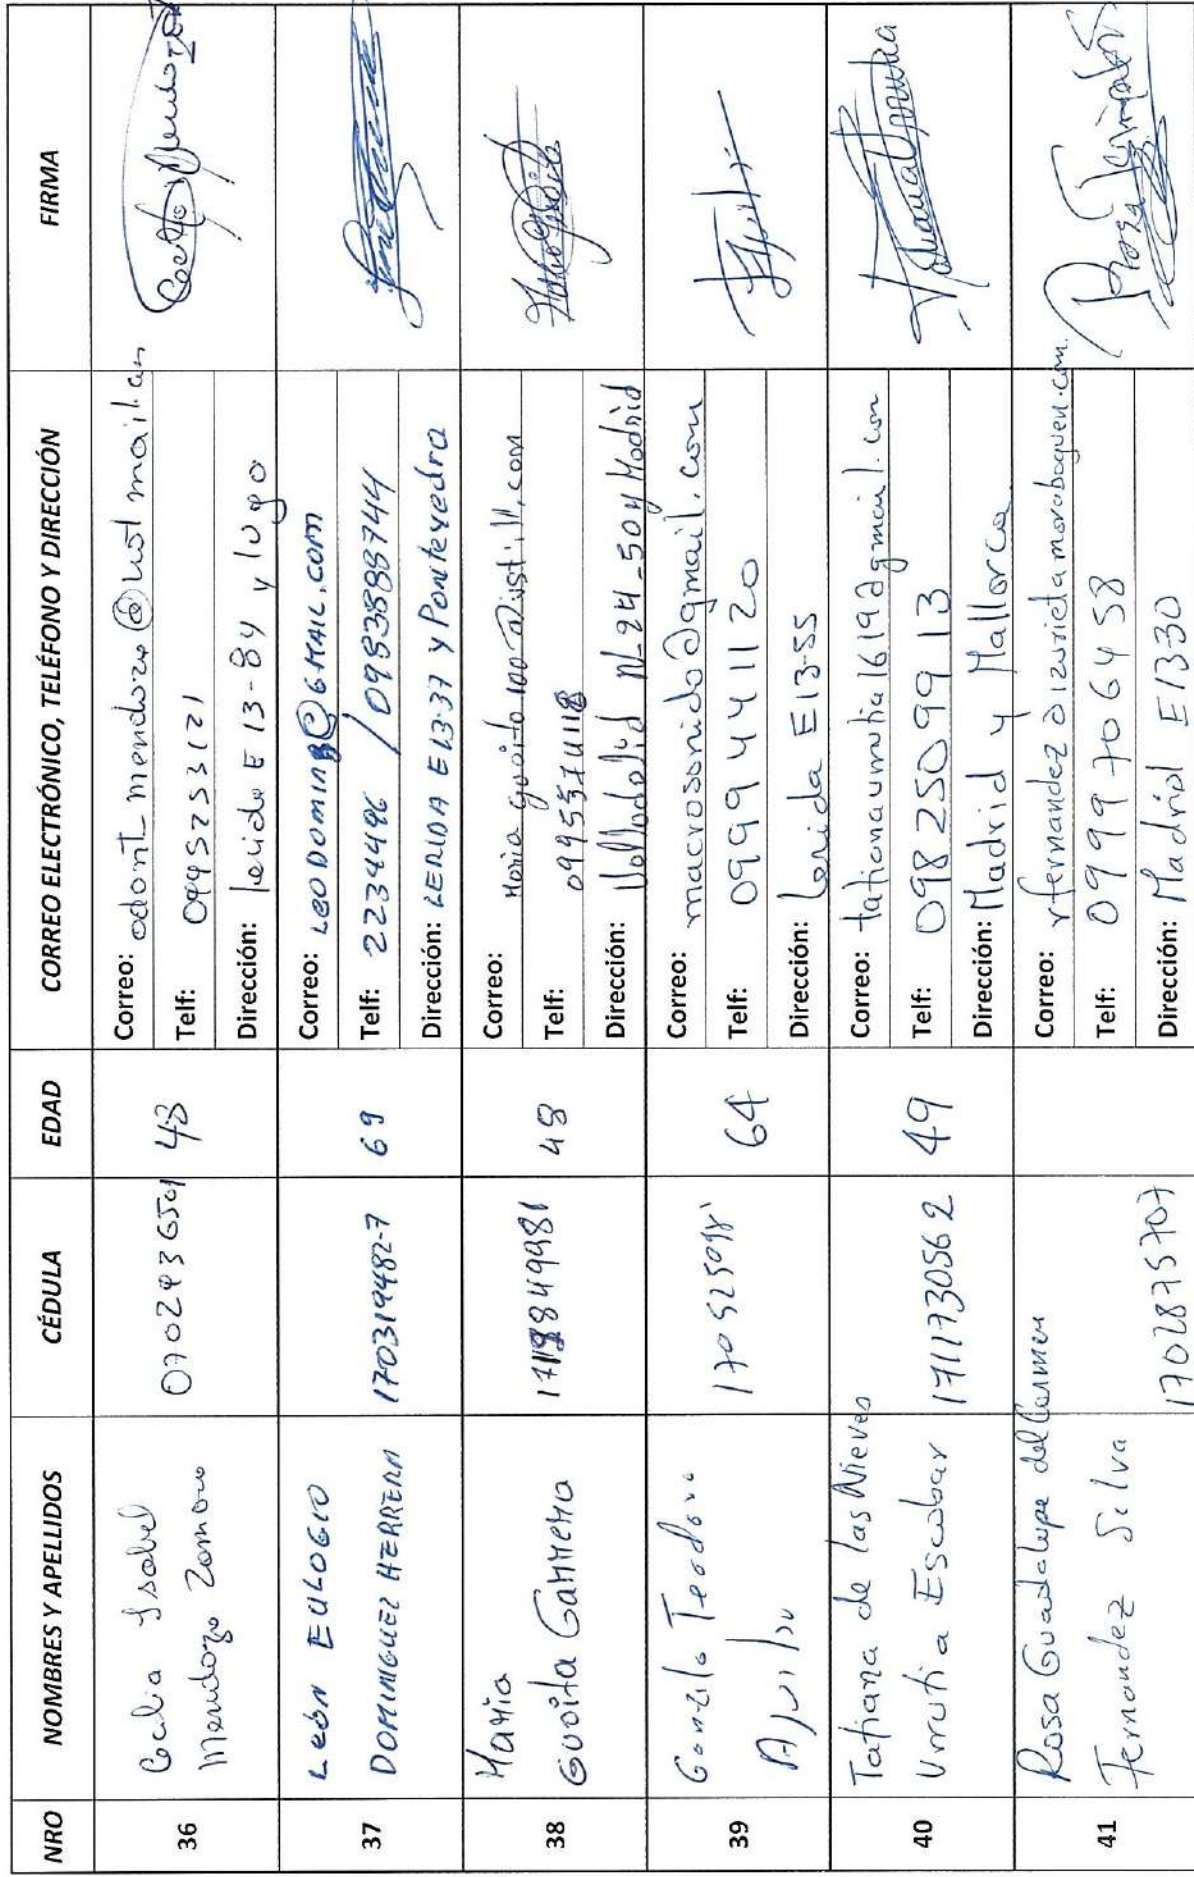 NRO NOMBRES Y APELLIDOS CÉDULA EDAD CORREO ELECTRÓNICO, TELÉFONO Y DIRECCIÓN FIRMA
36
Isabel
Mendoza
48
Correo: odont_mendoza@hotmail.com
Telf: 0995253121
Dirección: E 13-84 y lugo
37
León EULOGIO
DOMINGUEZ HERRERA
170319482-7
69
Correo: LEODOMING@GMAIL.COM
Telf: 2234496 / 0983888744
Dirección: LERIDA E13-37 y Pontevedra
38
Maria
Guaita
48
Correo:
Telf:
Dirección: Valladolid N_24_50 y Madrid
39
Gonzalo Teodoro
64
Correo: macrosonido@gmail.com
Telf: 099941120
Dirección: Lerida E13-55
40
Tatiana de las Nieves
Urrutia Escobar
1711730562
49
Correo: tatianaurrutia1619@gmail.com
Telf: 0982509913
Dirección: Madrid y Mallorca
41
Rosa Guadalupe del Carmen
Fernandez Silva
1702875707
Correo:
Telf: 0999706458
Dirección: Madrid E1330